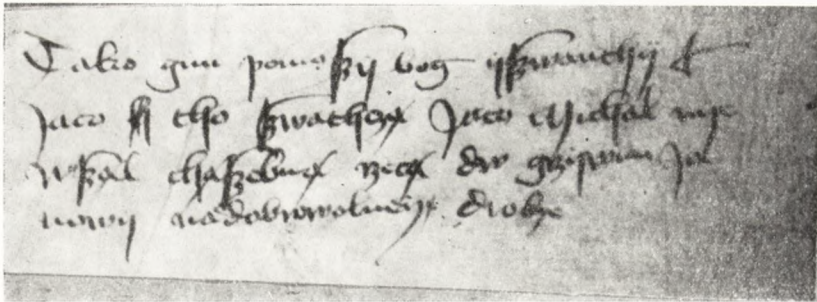 Tako gim pomoszy bog yszwanthy ⳨
Jaco tho szwathczø Jaco Michal nye
wszøl chaszebnø rzeczø dw grziwnu Ja
nowy nadobrowolneyø drodze